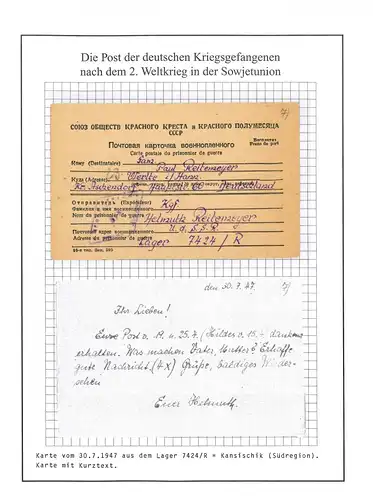 Die Post der deutschen Kriegsgefangenen
nach dem 2. Weltkrieg in der Sowjetunion
7)
СОЮЗ ОБЩЕСТВ КРАСНОГО КРЕСТА и КРАСНОГО ПОЛУМЕСЯЦА
СССР
Почтовая карточка военнопленного
Бесплатно
Franc de port
Carte postale du prisonnier de guerre
Fam.
Кому (Destinataire) Paul Reitemeyer
Куда (Adresse) Werlte i/Hann.
Kr. Deutschland
Отправитель (Expéditeur) Kgf.
Фамилия и имя военнопленного
Nom du prisonnier de guerre Helmuth Reitemeyer
Почтовый адрес военнопленного U.d.S.S.R.
Adresse du prisonnier de guerre Lager 7424/R
den 30.7.47. 7)
Ihr Lieben!
Eure Post v. 19. u. 25.7. / Hildes v. 15.7. dankend
erhalten. Was machen Vater, Mutter? Erhoffe
gute Nachricht. (4x) Grüße, baldiges Wieder-
sehen
Euer Helmuth.
Karte vom 30.7.1947 aus dem Lager 7424/R = Kansischik (Südregion).
Karte mit Kurztext.